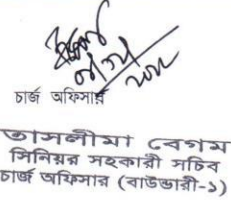 চার্জ অফিসার
তাসলীমা বেগম
সিনিয়র সহকারী সচিব
চার্জ অফিসার (বাউন্ডারী-১)